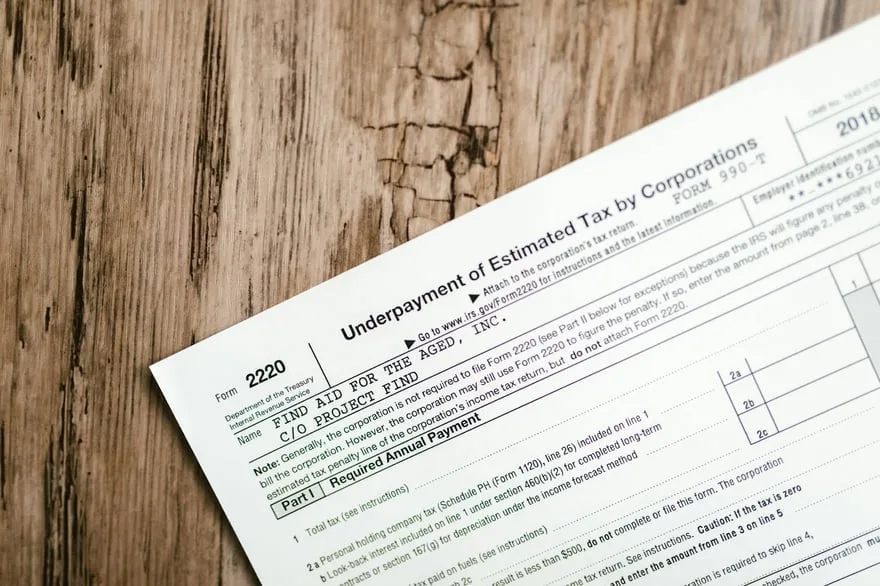 OMB No. 1545-0123
2018
Form 2220
Department of the Treasury
Internal Revenue Service
Underpayment of Estimated Tax by Corporations
▶ Attach to the corporation's tax return. FORM 990-T
▶ Go to www.irs.gov/Form2220 for instructions and the latest information.
Name
Employer identification numb
FIND AID FOR THE AGED, INC.
C/O PROJECT FIND
**-***6921
Note: Generally, the corporation is not required to file Form 2220 (see Part II below for exceptions) because the IRS will figure any penalty o
bill the corporation. However, the corporation may still use Form 2220 to figure the penalty. If so, enter the amount from page 2, line 38, on
estimated tax penalty line of the corporation's income tax return, but do not attach Form 2220.
Part I Required Annual Payment
1 Total tax (see instructions) 1
2 a Personal holding company tax (Schedule PH (Form 1120), line 26) included on line 1 2a
b Look-back interest included on line 1 under section 460(b)(2) for completed long-term
contracts or section 167(g) for depreciation under the income forecast method 2b
tax paid on fuels (see instructions) 2c
ugh 2c
result is less than $500, do not complete or file this form. The corporation
income tax return. See instructions. Caution: If the tax is zero
and enter the amount from line 3 on line 5
oration is required to skip line 4,
checked, the corporation mu